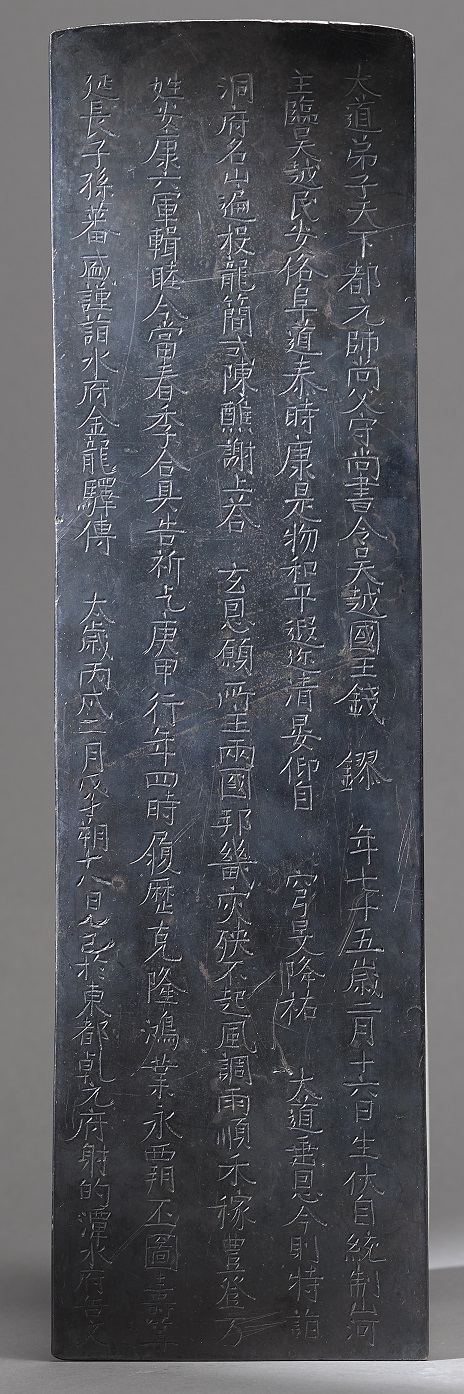 大道弟子天下都元帥尚父守尚書令吳越國王錢　鏐　年七十五歲二月十六日生伏自統制山河
主臨吳越民安俗阜道泰時康是物和平遐迩清晏仰自　穹旻降祐　大道垂恩今則特詣
洞府名山遍投龍簡寸陳醮謝上荅　玄恩願所王兩國邦畿灾殃不起風調雨順禾稼豊登万
姓安康六軍輯睦今當春季合具告祈元庚甲行年四時履歷克隆鴻業永丕圖壽筭
延長子孫蕃盛謹詣水府金龍驛傳　太歲丙戌三月朔十八日於東都乾元府射的潭水府告文